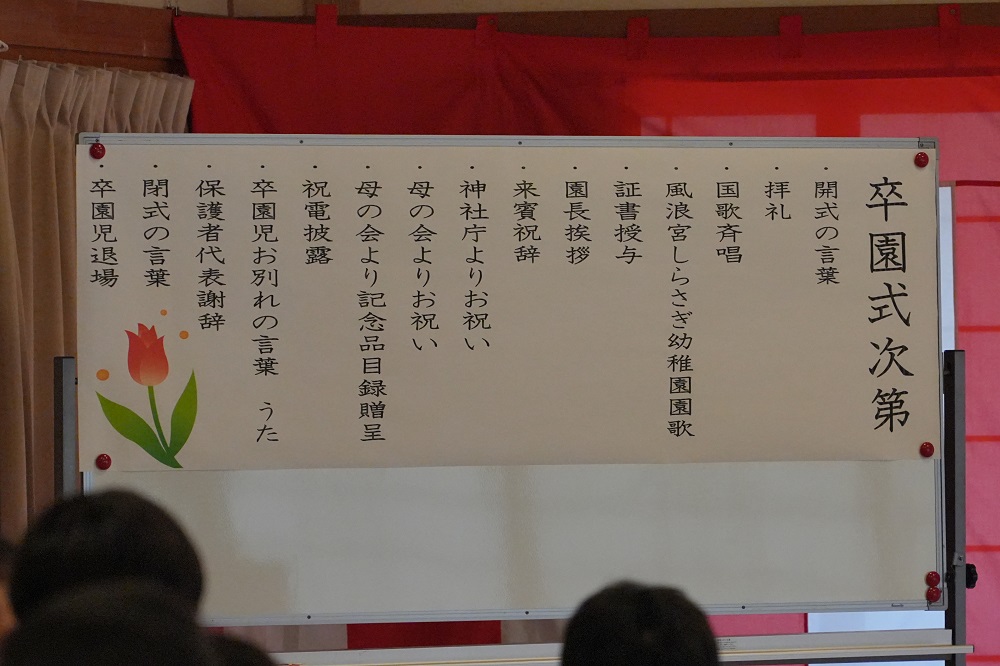 卒園式次第
・開式の言葉
・拝礼
・国歌斉唱
・風浪宮しらさぎ幼稚園園歌
・証書授与
・園長挨拶
・来賓祝辞
・神社庁よりお祝い
・母の会よりお祝い
・母の会より記念品目録贈呈
・祝電披露
・卒園児お別れの言葉　うた
・保護者代表謝辞
・閉式の言葉
・卒園児退場